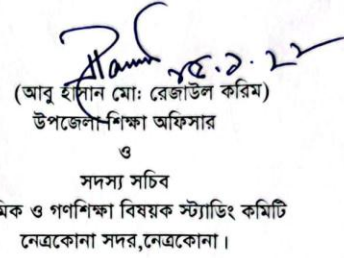 ১৫.৯.২২
(আবু হাসান মো: রেজাউল করিম)
উপজেলা শিক্ষা অফিসার
ও
সদস্য সচিব
মিক ও গণশিক্ষা বিষয়ক স্ট্যাডিং কমিটি
নেত্রকোনা সদর,নেত্রকোনা।